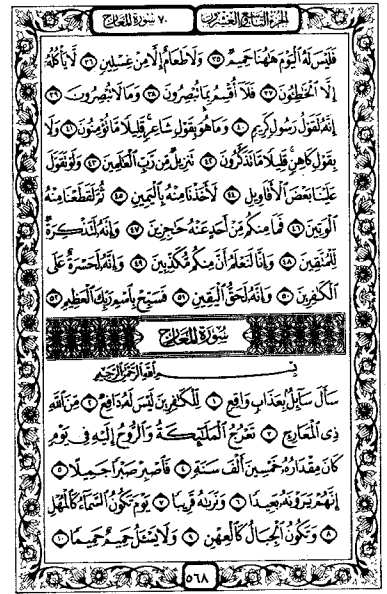 الجزء التاسع والعشرون ٧٠ سورة المعارج
فَلَيْسَ لَهُ الْيَوْمَ هَاهُنَا حَمِيمٌ ٣٥ وَلَا طَعَامٌ إِلَّا مِنْ غِسْلِينٍ ٣٦ لَا يَأْكُلُهُ
إِلَّا الْخَاطِئُونَ ٣٧ فَلَا أُقْسِمُ بِمَا تُبْصِرُونَ ٣٨ وَمَا لَا تُبْصِرُونَ ٣٩
إِنَّهُ لَقَوْلُ رَسُولٍ كَرِيمٍ ٤٠ وَمَا هُوَ بِقَوْلِ شَاعِرٍ قَلِيلًا مَا تُؤْمِنُونَ ٤١ وَلَا
بِقَوْلِ كَاهِنٍ قَلِيلًا مَا تَذَكَّرُونَ ٤٢ تَنْزِيلٌ مِنْ رَبِّ الْعَالَمِينَ ٤٣ وَلَوْ تَقَوَّلَ
عَلَيْنَا بَعْضَ الْأَقَاوِيلِ ٤٤ لَأَخَذْنَا مِنْهُ بِالْيَمِينِ ٤٥ ثُمَّ لَقَطَعْنَا مِنْهُ
الْوَتِينَ ٤٦ فَمَا مِنْكُمْ مِنْ أَحَدٍ عَنْهُ حَاجِزِينَ ٤٧ وَإِنَّهُ لَتَذْكِرَةٌ
لِلْمُتَّقِينَ ٤٨ وَإِنَّا لَنَعْلَمُ أَنَّ مِنْكُمْ مُكَذِّبِينَ ٤٩ وَإِنَّهُ لَحَسْرَةٌ عَلَى
الْكَافِرِينَ ٥٠ وَإِنَّهُ لَحَقُّ الْيَقِينِ ٥١ فَسَبِّحْ بِاسْمِ رَبِّكَ الْعَظِيمِ ٥٢
سُورَةُ الْمَعَارِجِ
بِسْمِ اللَّهِ الرَّحْمَنِ الرَّحِيمِ
سَأَلَ سَائِلٌ بِعَذَابٍ وَاقِعٍ ١ لِلْكَافِرِينَ لَيْسَ لَهُ دَافِعٌ ٢ مِنَ اللَّهِ
ذِي الْمَعَارِجِ ٣ تَعْرُجُ الْمَلَائِكَةُ وَالرُّوحُ إِلَيْهِ فِي يَوْمٍ
كَانَ مِقْدَارُهُ خَمْسِينَ أَلْفَ سَنَةٍ ٤ فَاصْبِرْ صَبْرًا جَمِيلًا ٥
إِنَّهُمْ يَرَوْنَهُ بَعِيدًا ٦ وَنَرَاهُ قَرِيبًا ٧ يَوْمَ تَكُونُ السَّمَاءُ كَالْمُهْلِ
٨ وَتَكُونُ الْجِبَالُ كَالْعِهْنِ ٩ وَلَا يَسْأَلُ حَمِيمٌ حَمِيمًا ١٠
٥٦٨